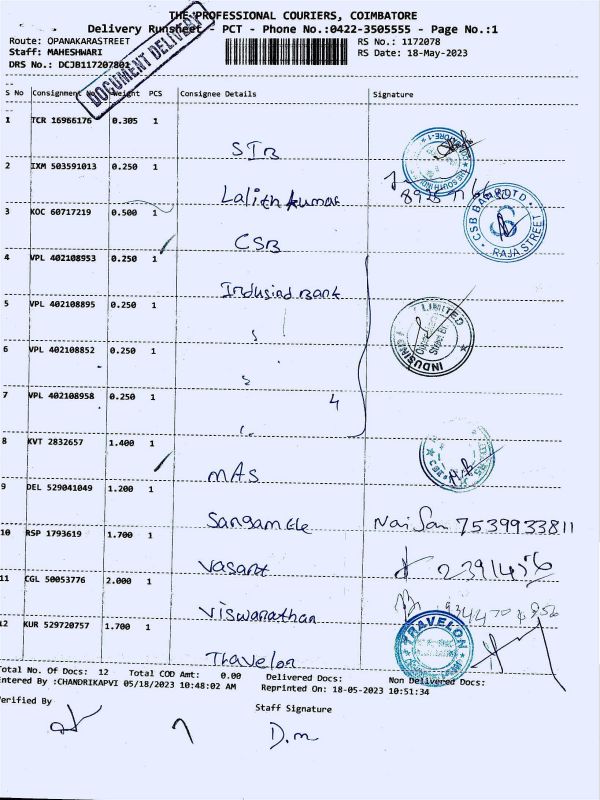 THE PROFESSIONAL COURIERS, COIMBATORE
Delivery Runsheet - PCT - Phone No.:0422-3505555 - Page No.:1
Route: OPANAKARASTREET
RS No.: 1172078
Staff: MAHESHWARI
RS Date: 18-May-2023
DRS No.: DCJB117207801
DOCUMENT DELIVERY
S No Consignment No Weight PCS Consignee Details Signature
1 TCR 16966176 0.305 1 SIB
2 IXM 503591013 0.250 1 Lalith kumar
3 KOC 60717219 0.500 1 CSB
CSB BANK LTD RAJA STREET
4 VPL 402108953 0.250 1 Indusind Bank
5 VPL 402108895 0.250 1
LIMITED INDUSIND
6 VPL 402108852 0.250 1
7 VPL 402108958 0.250 1 4
8 KVT 2832657 1.400 1 MAS
9 DEL 529041049 1.200 1 Sangam Ele 7539933811
10 RSP 1793619 1.700 1 Vasant
11 CGL 50053776 2.000 1 Viswanathan
12 KUR 529720757 1.700 1 Travelon
TRAVELON
Total No. Of Docs: 12 Total COD Amt: 0.00 Delivered Docs: Non Delivered Docs:
Entered By :CHANDRIKAPVI 05/18/2023 10:48:02 AM Reprinted On: 18-05-2023 10:51:34
Verified By
Staff Signature
D.m